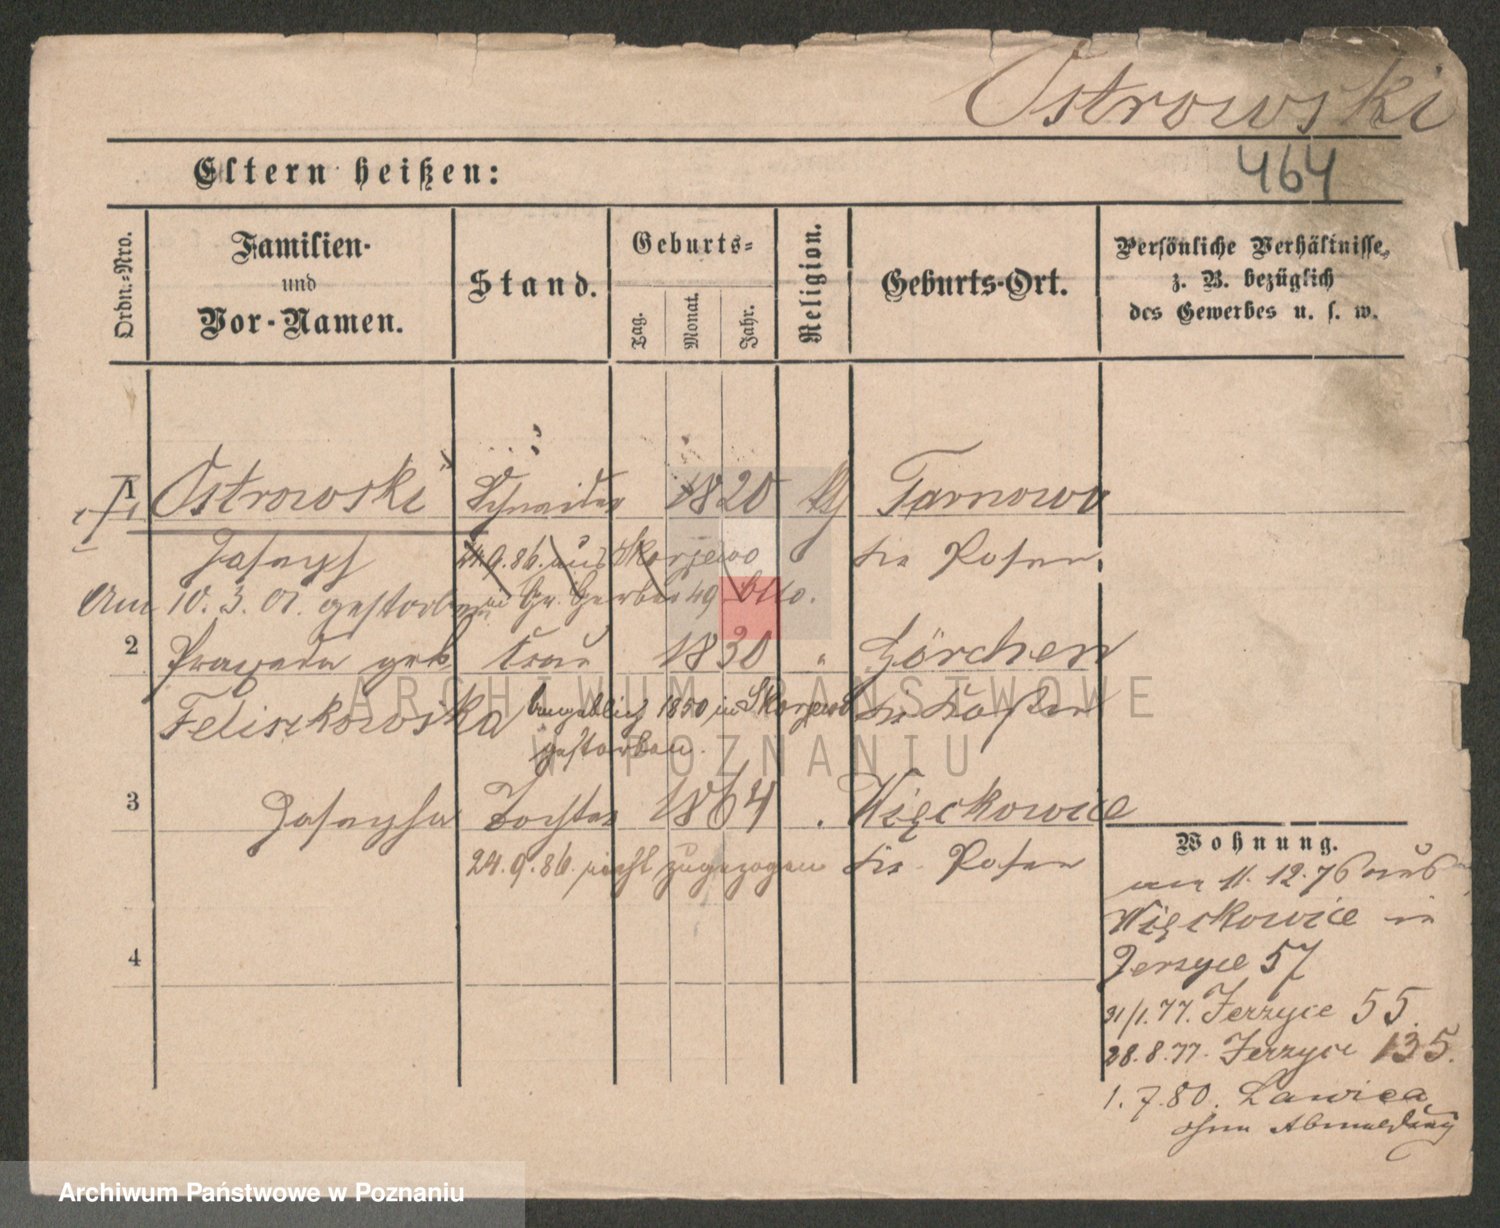 Ostrowski
464
Eltern heißen:
Ordn.-Nro.
Familien-
und
Vor-Namen.
Stand.
Geburts-
Tag.
Monat.
Jahr.
Religion.
Geburts-Ort.
Persönliche Verhältnisse,
z. B. bezüglich
des Gewerbes u. s. w.
1 Ostrowski Schneider 1820 Tarnowo
Joseph 24.9.86. aus Skorzewo Posen
Am 10.3.01. gestorben Gr. Gerber 49
2 geb. Frau 1830 " Görchen
Feliszkowska angeblich 1850 in Skorzewo
gestorben.
3 Josepha Tochter 1864 Więckowice
24.9.86. nicht zugezogen Posen
4
Wohnung.
am 11.12.76 aus
Więckowice in
Jerzyce 57
31/1.77. Jerzyce 55.
28.8.77. Jerzyce 135.
1.7.80. Lawica
ohne Abmeldung
ARCHIWUM PAŃSTWOWE
W POZNANIU
Archiwum Państwowe w Poznaniu